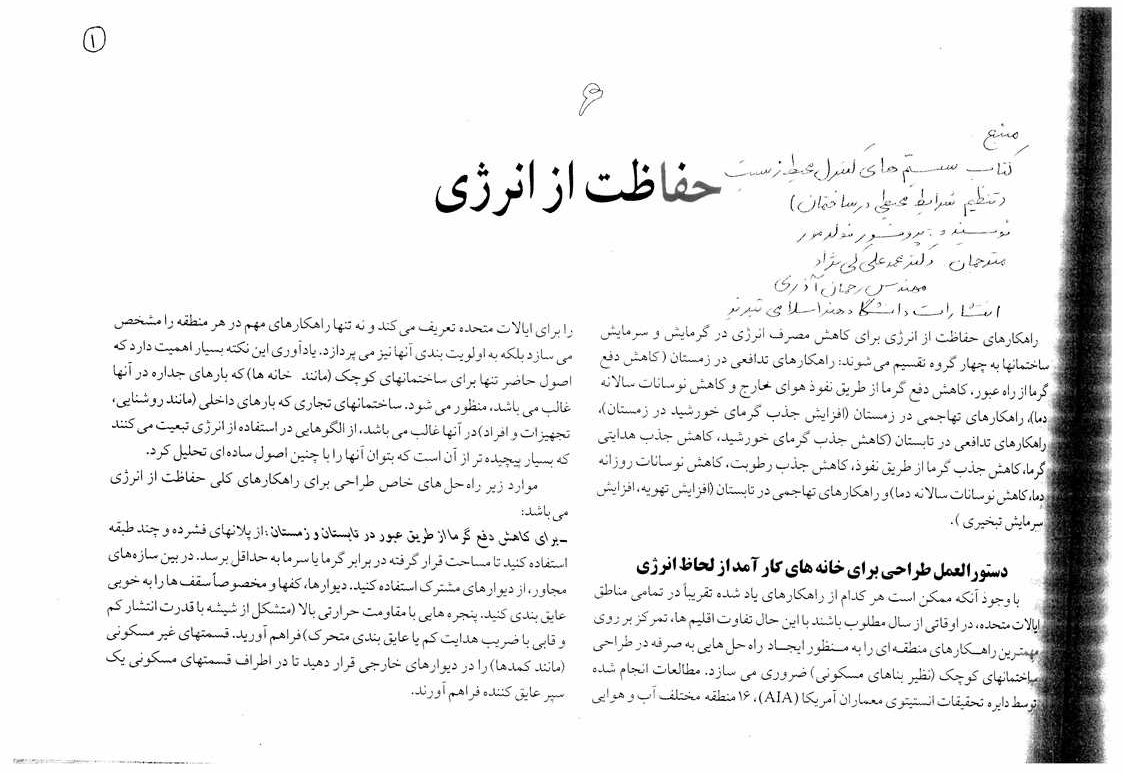 ۱
۶
حفاظت از انرژی
منبع
کتاب سیستم های کنترل محیط زیست
(تنظیم شرایط محیطی در ساختمان)
نویسنده: پروفسور فولرمور
مترجمان دکتر محمدعلی کی نژاد
مهندس رحمان آذری
انتشارات دانشگاه هنر اسلامی تبریز
راهکارهای حفاظت از انرژی برای کاهش مصرف انرژی در گرمایش و سرمایش
ساختمانها به چهار گروه تقسیم می شوند: راهکارهای تدافعی در زمستان (کاهش دفع
گرما از راه عبور، کاهش دفع گرما از طریق نفوذ هوای خارج و کاهش نوسانات سالانه
دما)، راهکارهای تهاجمی در زمستان (افزایش جذب گرمای خورشید در زمستان)،
راهکارهای تدافعی در تابستان (کاهش جذب گرمای خورشید، کاهش جذب هدایتی
گرما، کاهش جذب گرما از طریق نفوذ، کاهش جذب رطوبت، کاهش نوسانات روزانه
دما، کاهش نوسانات سالانه دما) و راهکارهای تهاجمی در تابستان (افزایش تهویه، افزایش
سرمایش تبخیری ).
دستورالعمل طراحی برای خانه های کارآمد از لحاظ انرژی
با وجود آنکه ممکن است هر کدام از راهکارهای یاد شده تقریباً در تمامی مناطق
ایالات متحده، در اوقاتی از سال مطلوب باشند با این حال تفاوت اقلیم ها، تمرکز بر روی
مهمترین راهکارهای منطقه ای را به منظور ایجاد راه حل هایی به صرفه در طراحی
ساختمانهای کوچک (نظیر بناهای مسکونی) ضروری می سازد. مطالعات انجام شده
توسط دایره تحقیقات انستیتوی معماران آمریکا (AIA)، ۱۶ منطقه مختلف آب و هوایی
را برای ایالات متحده تعریف می کند و نه تنها راهکارهای مهم در هر منطقه را مشخص
می سازد بلکه به اولویت بندی آنها نیز می پردازد. یادآوری این نکته بسیار اهمیت دارد که
اصول حاضر تنها برای ساختمانهای کوچک (مانند خانه ها) که بارهای جداره در آنها
غالب می باشد، منظور می شود. ساختمانهای تجاری که بارهای داخلی (مانند روشنایی،
تجهیزات و افراد) در آنها غالب می باشد، از الگوهایی در استفاده از انرژی تبعیت می کنند
که بسیار پیچیده تر از آن است که بتوان آنها را با چنین اصول ساده ای تحلیل کرد.
موارد زیر راه حل های خاص طراحی برای راهکارهای کلی حفاظت از انرژی
می باشد:
-برای کاهش دفع گرما از طریق عبور در تابستان و زمستان: از پلانهای فشرده و چند طبقه
استفاده کنید تا مساحت قرار گرفته در برابر گرما یا سرما به حداقل برسد. در بین سازه های
مجاور، از دیوارهای مشترک استفاده کنید. دیوارها، کفها و مخصوصاً سقف ها را به خوبی
عایق بندی کنید. پنجره هایی با مقاومت حرارتی بالا (متشکل از شیشه با قدرت انتشار کم
و قابی با ضریب هدایت کم یا عایق بندی متحرک) فراهم آورید. قسمتهای غیر مسکونی
(مانند کمدها) را در دیوارهای خارجی قرار دهید تا در اطراف قسمتهای مسکونی یک
سپر عایق کننده فراهم آورند.